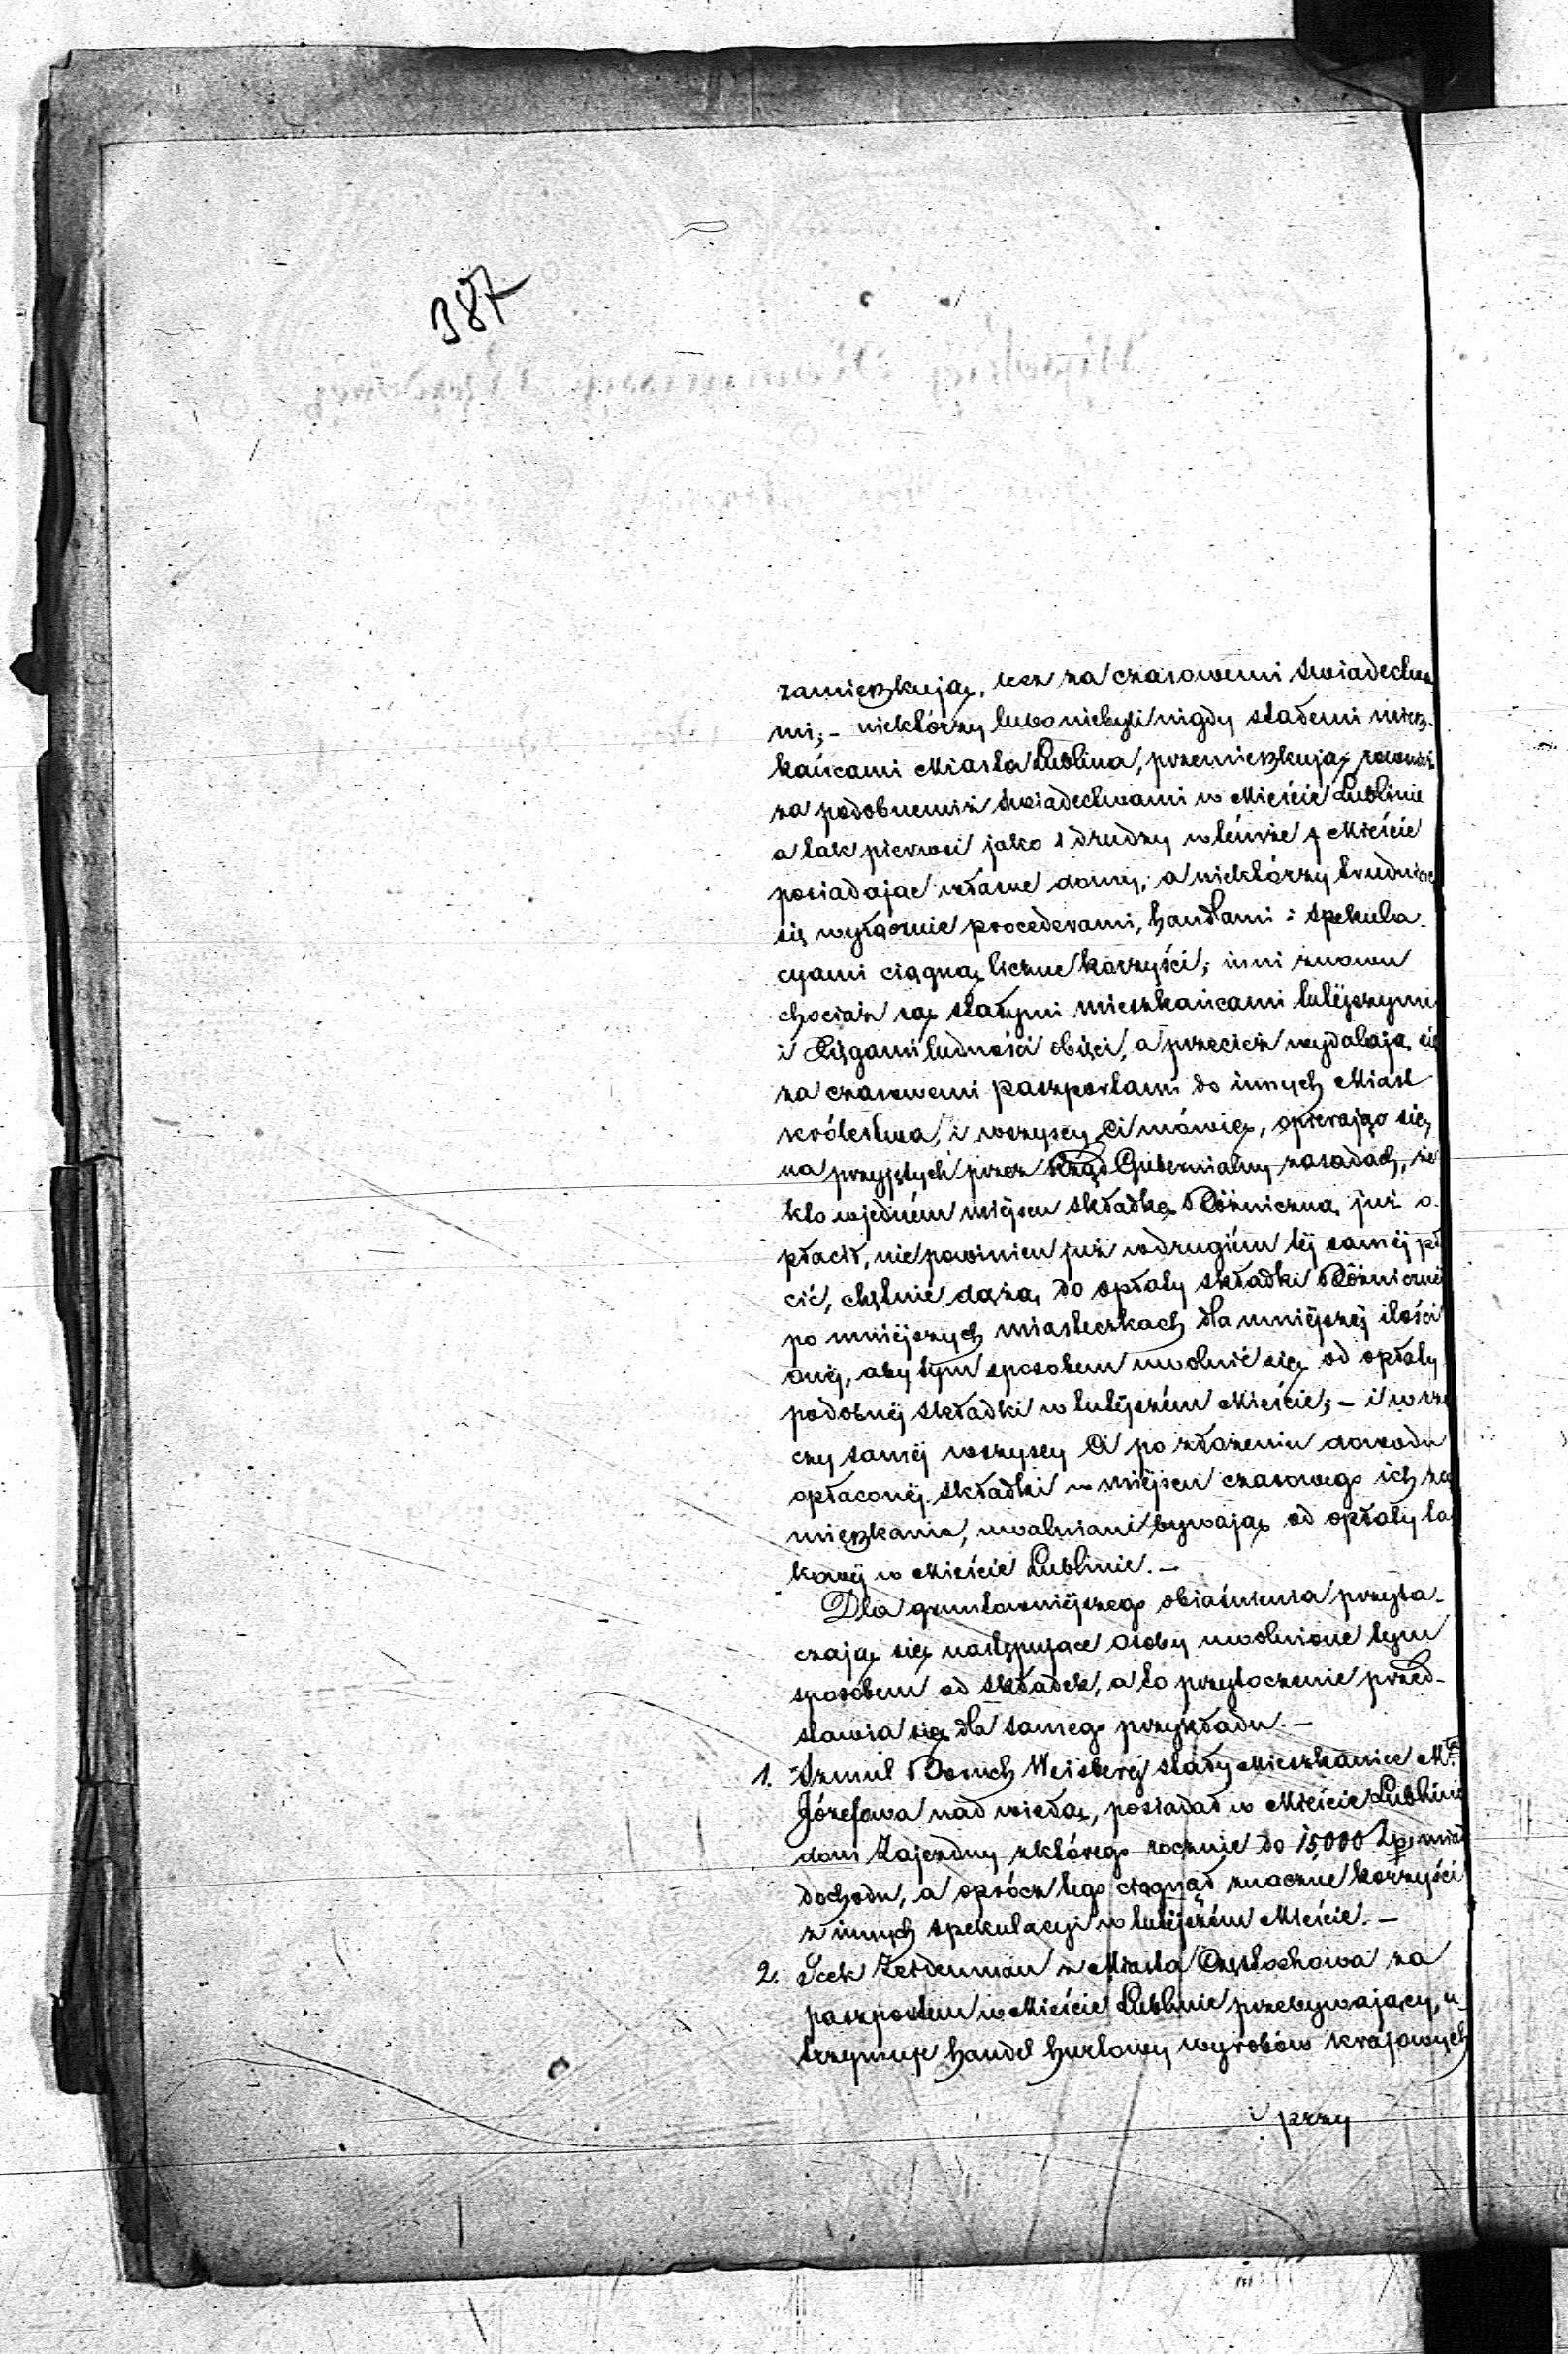 387
zamieszkują, lecz za czasowemi świadectwa
mi; – niektórzy lubo niebyli nigdy stałemi miesz-
kańcami Miasta Lublina, przemieszkują rownież
za podobnemiż świadectwami w Mieście Lublinie
a tak pierwsi jako i drudzy w témże Mieście
posiadając własne domy, a niektórzy trudniąc
się wyłącznie procederami, handlami i spekula-
cyami ciągną liczne korzyści; inni znowu
chociaż są stałymi mieszkańcami tutéjszymi
i Księgami ludności objęci, a przecież wydalają się
za czasowemi paszportami do innych Miast
królestwa, i wszyscy Ci mówię, opierając się
na przyjętych przez Rząd Gubernialny zasadach, że
kto w jedném miéjscu składkę Bóżniczną już o-
płacił, nie powinien już w drugiém téj saméj pła
cić, chętnie dążą do opłaty składki Bóżnicznéj
po mniéjszych miasteczkach dla mniéjszéj ilości
onéj, aby tym sposobem uwolnić się od opłaty
podobnéj składki w tutéjszém Mieście; – i w rze
czy saméj wszyscy Ci po złożeniu dowodu
opłaconéj składki w miéjscu czasowego ich za
mieszkania, uwalniani bywają od opłaty ta
kowéj w Mieście Lublinie. –
Dla gruntowniéjszego objaśnienia przyta-
czają się następujące osoby uwolnione tym
sposobem od składek, a to przytoczenie przed-
stawia się dla samego przykładu. –
1. Szmul Boruch Weisberg stały Mieszkaniec Mta
Józefowa nad wisłą, posiadał w Mieście Lublinie
dom Zajezdny z którego rocznie do 15,000 Zp. miał
dochodu, a oprócz tego ciągnął znaczne korzyści
z innych spekulacyi w tutéjszém Mieście. –
2. Icek Zeidenman z Miasta Częstochowa za
paszportem w Mieście Lublinie przebywający, u-
trzymuje handel hurtowy wyrobów krajowych
i przy